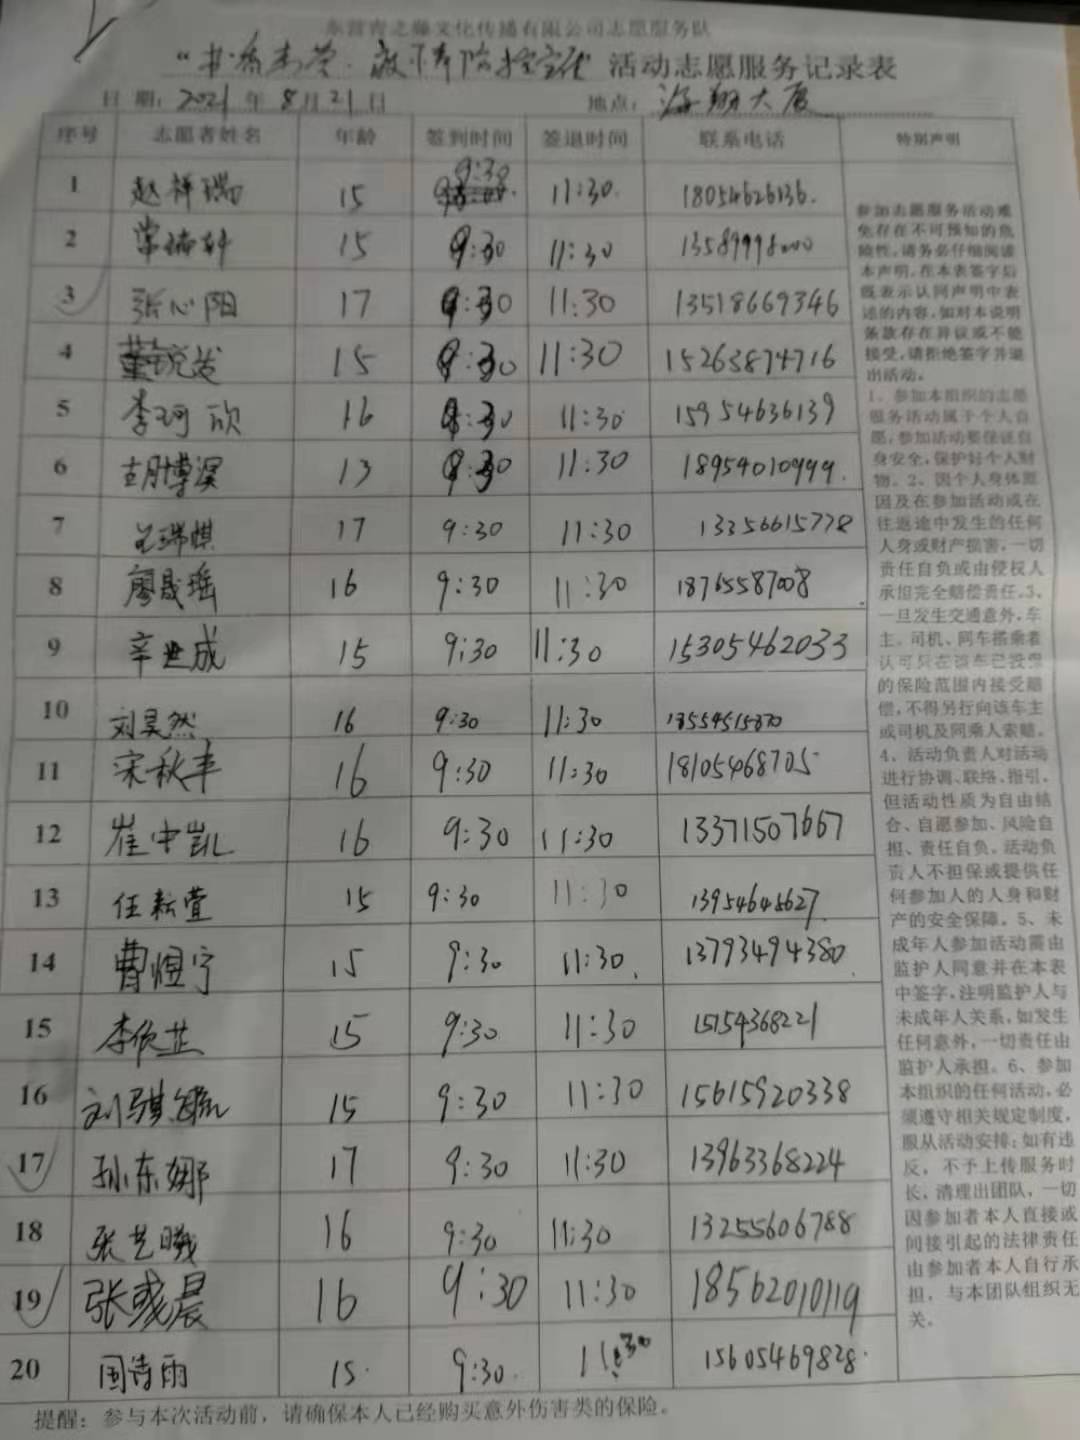 东营青之藤文化传播有限公司志愿服务队
活动志愿服务记录表
日 期：2021 年 8 月 21 日 地点：海翔大厦
序号 志愿者姓名 年龄 签到时间 签退时间 联系电话 特别声明
1 赵祥瑞 15 9:30 11:30. 18054626136.
2 15 9:30 11:30
3 张心阳 17 9:30 11:30 13518669346
4 15 9:30 11:30 15263874716
5 李珂欣 16 9:30 11:30 15954636139
6 13 9:30 11:30 18954010999.
7 王瑞祺 17 9:30 11:30 13356615778
8 廖晟瑶 16 9:30 11:30 18765587008
9 辛世成 15 9:30 11:30 15305462033
10 刘昊然 16 9:30 11:30 18554515870
11 宋秋丰 16 9:30 11:30 18105468705
12 崔中凯 16 9:30 11:30 13371507667
13 任耘萱 15 9:30 11:30 13954645627
14 曹恒宁 15 9:30 11:30. 13793494380.
15 15 9:30 11:30 15154368221
16 15 9:30 11:30 15615920338
17 孙东娜 17 9:30 11:30 13963368224
18 张艺曦 16 9:30 11:30 13255606788
19 张彧晨 16 9:30 11:30 18562010119
20 国诗雨 15. 9:30. 11:30 15605469828.
参加志愿服务活动难
免存在不可预知的危
险性，请务必仔细阅读
本声明，在本表签字后
既表示认同声明中表
述的内容，如对本说明
条款存在异议或不能
接受，请拒绝签字并退
出活动。
1、参加本组织的志愿
服务活动属于个人自
愿，参加活动要保证自
身安全，保护好个人财
物。2、因个人身体原
因及在参加活动或在
往返途中发生的任何
人身或财产损害，一切
责任自负或由侵权人
承担完全赔偿责任。3、
一旦发生交通意外，车
主、司机、同车搭乘者
认可只在该车已投保
的保险范围内接受赔
偿，不得另行向该车主
或司机及同乘人索赔。
4、活动负责人对活动
进行协调、联络、指引，
但活动性质为自由结
合、自愿参加、风险自
担、责任自负。活动负
责人不担保或提供任
何参加人的人身和财
产的安全保障。5、未
成年人参加活动需由
监护人同意并在本表
中签字，注明监护人与
未成年人关系，如发生
任何意外，一切责任由
监护人承担。6、参加
本组织的任何活动，必
须遵守相关规定制度，
服从活动安排；如有违
反，不予上传服务时
长，清理出团队，一切
因参加者本人直接或
间接引起的法律责任
由参加者本人自行承
担，与本团队组织无
关。
提醒：参与本次活动前，请确保本人已经购买意外伤害类的保险。